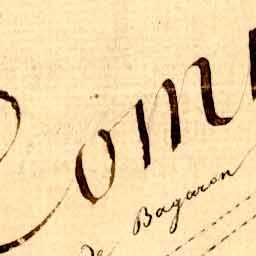 Com
de Bagaron